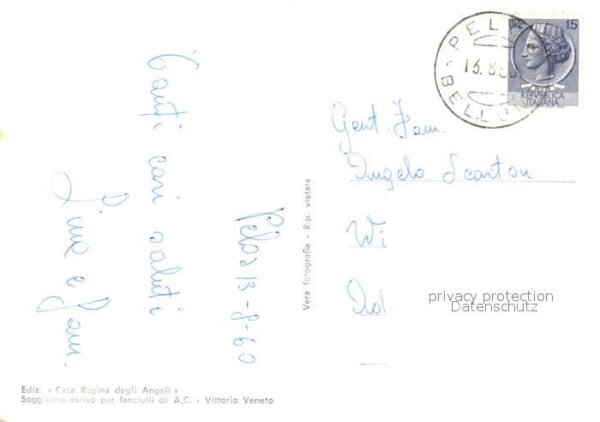 Pelos 13-8-60
Tanti cari saluti
Pina e fam.
Gent. Fam.
Angelo Scarton
Wi
Ad
privacy protection
Datenschutz
Vera fotografia - Rip. vietata
Ediz. « Casa Regina degli Angeli »
Soggiorno estivo per fanciulli di A.C. - Vittorio Veneto
LIRE 15
REPVBBLICA
ITALIANA
PELOS
BELLUNO